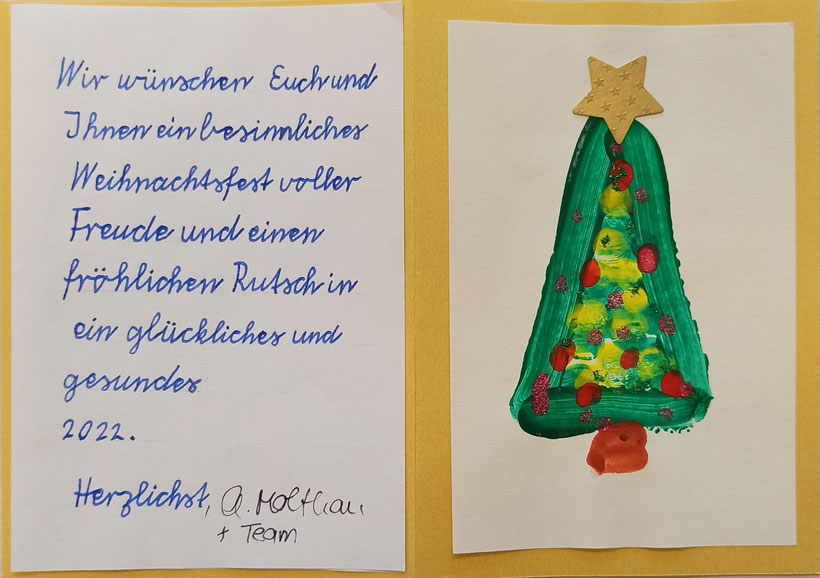 Wir wünschen Euch und
Ihnen ein besinnliches
Weihnachtsfest voller
Freude und einen
fröhlichen Rutsch in
ein glückliches und
gesundes
2022.
Herzlichst,
+ Team